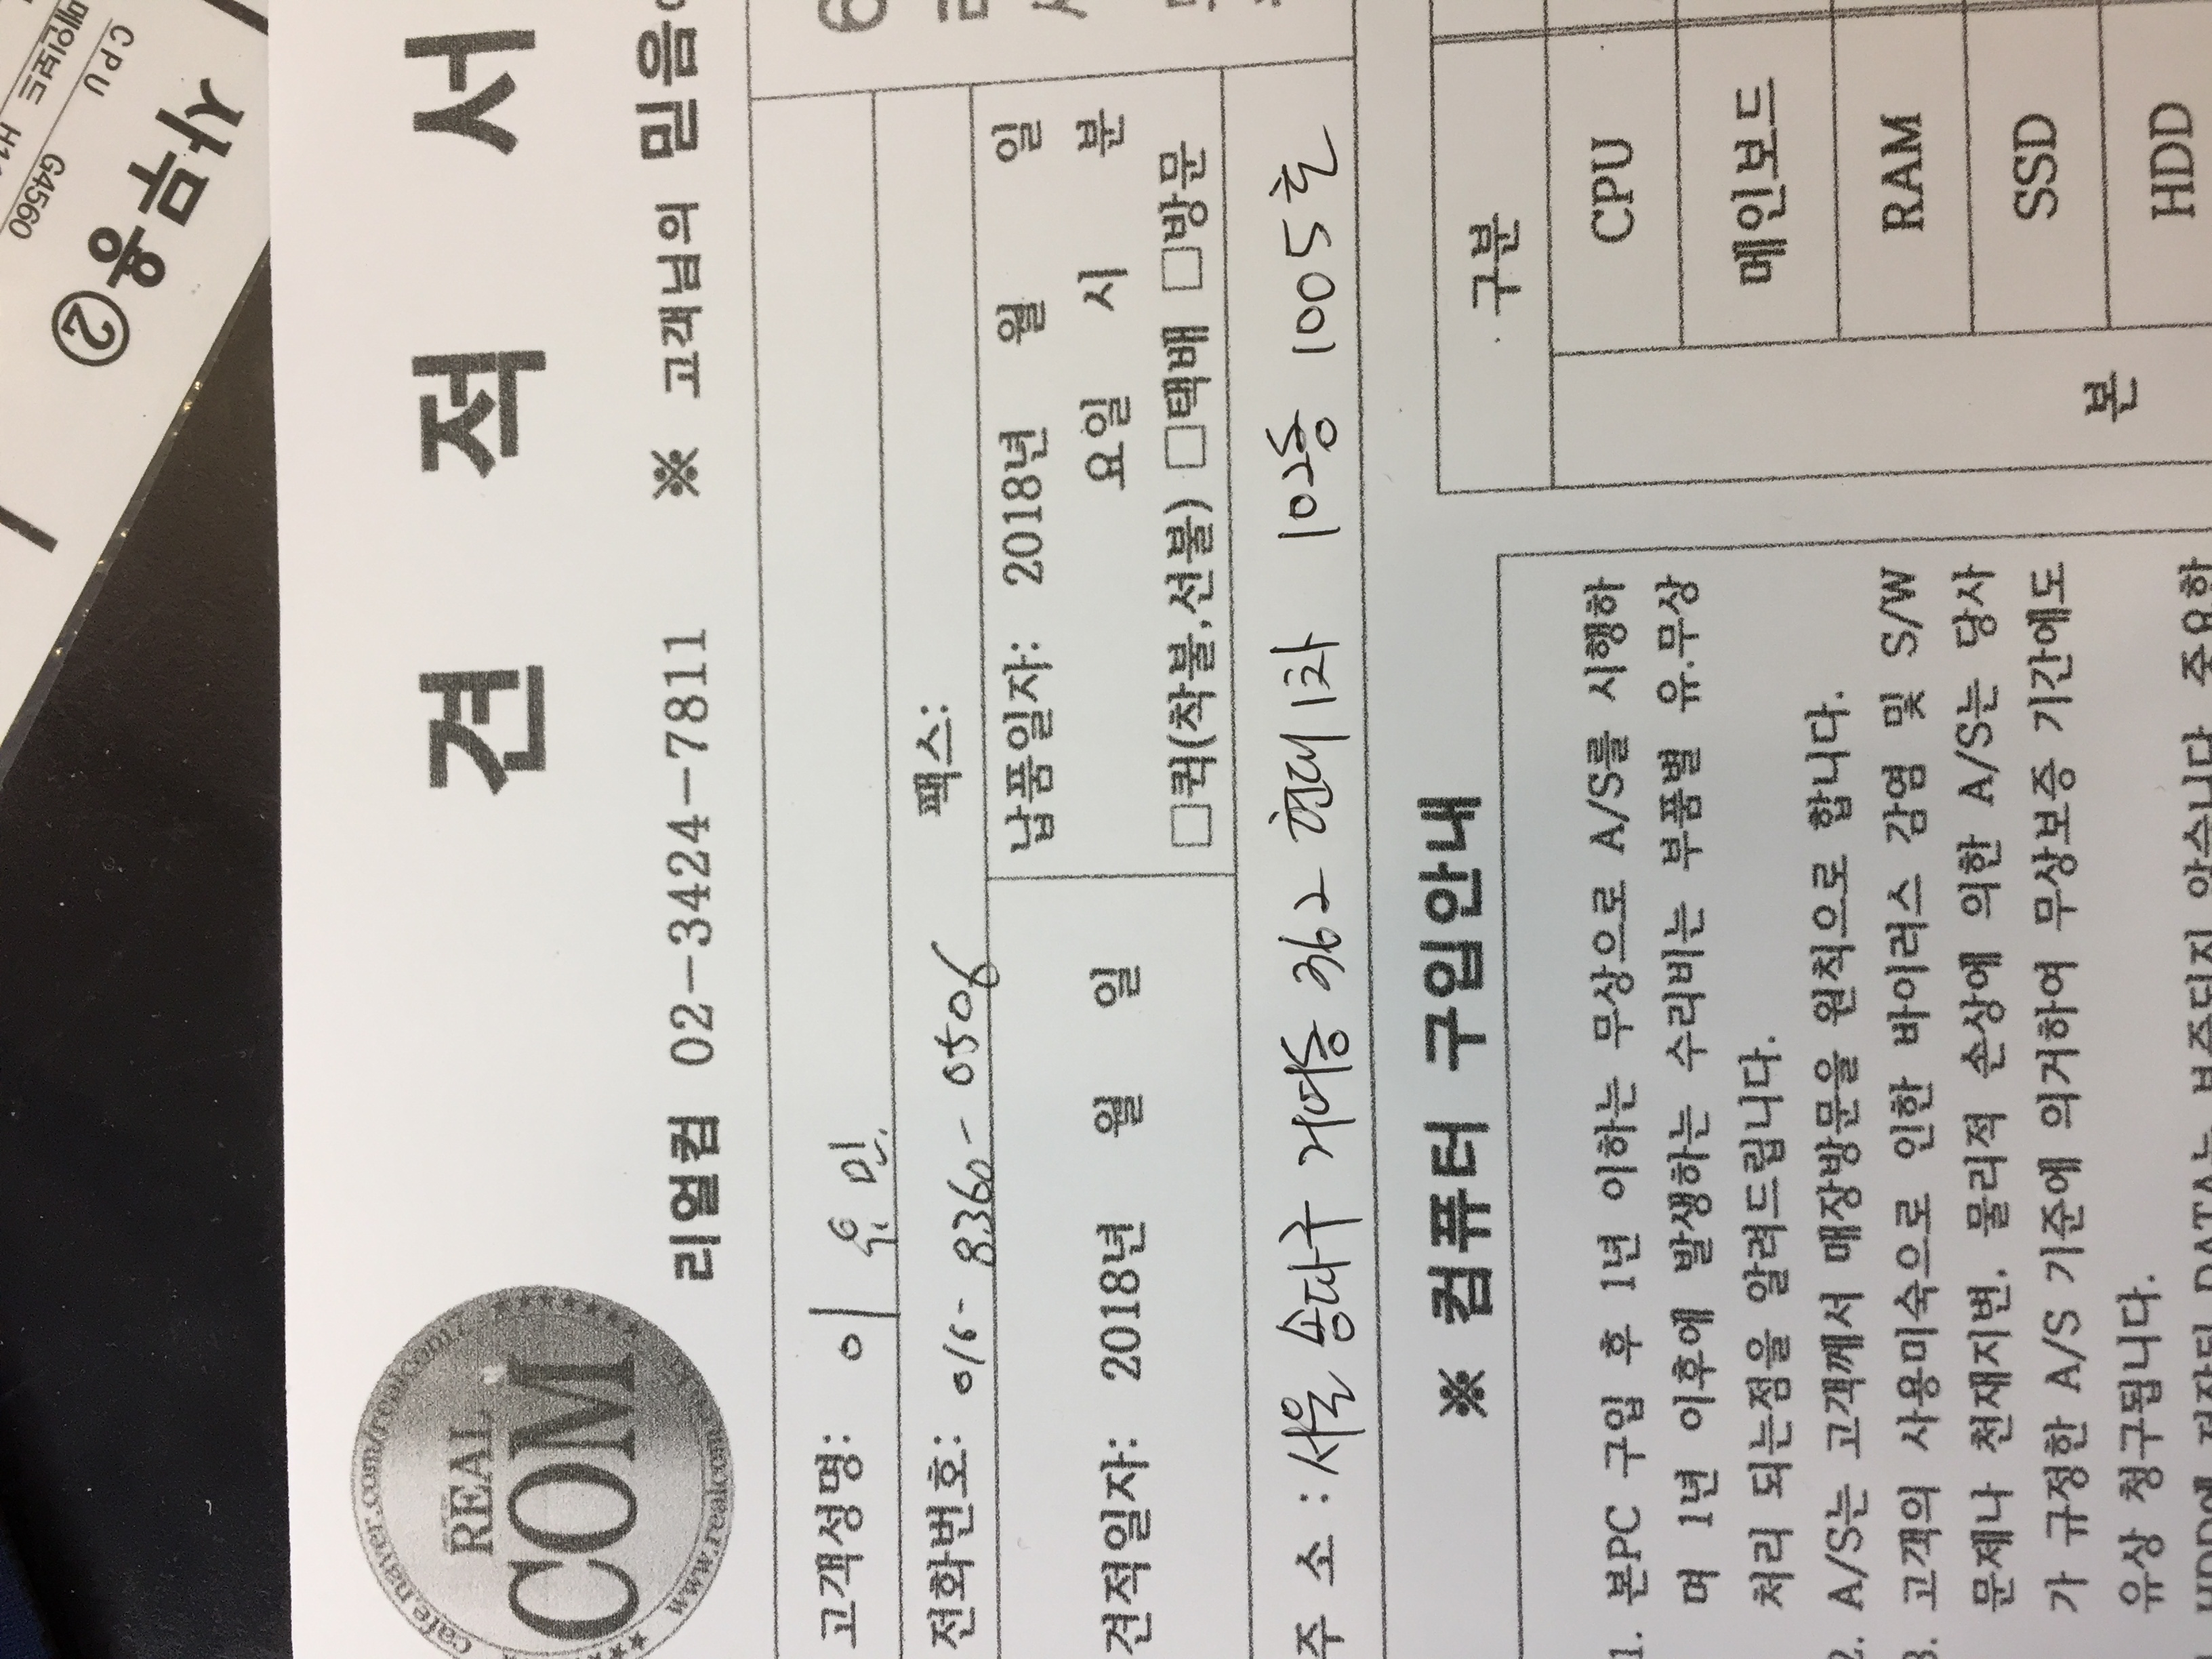 견 적 서
REAL
COM
cafe.naver.com/realcom7
리얼컴 02-3424-7811 ※ 고객님의 믿음
고객성명: 이 유 민
전화번호: 016-8360-0506 팩스:
견적일자: 2018년 월 일
납품일자: 2018년 월 일
요일 시 분
□퀵(착불,선불) □택배 □방문
주 소 : 서울 송파구 거여동 362 현대1차 102동 1005호
※ 컴퓨터 구입안내
1. 본PC 구입 후 1년 이하는 무상으로 A/S를 시행하
며 1년 이후에 발생하는 수리비는 부품별 유.무상
처리 되는점을 알려드립니다.
2. A/S는 고객께서 매장방문을 원칙으로 합니다.
3. 고객의 사용미숙으로 인한 바이러스 감염 및 S/W
문제나 천재지변. 물리적 손상에 의한 A/S는 당사
가 규정한 A/S 기준에 의거하여 무상보증 기간에도
유상 청구됩니다.
구분
CPU
메인보드
RAM
SSD
HDD
본
사무용②
CPU G4560
메인보드